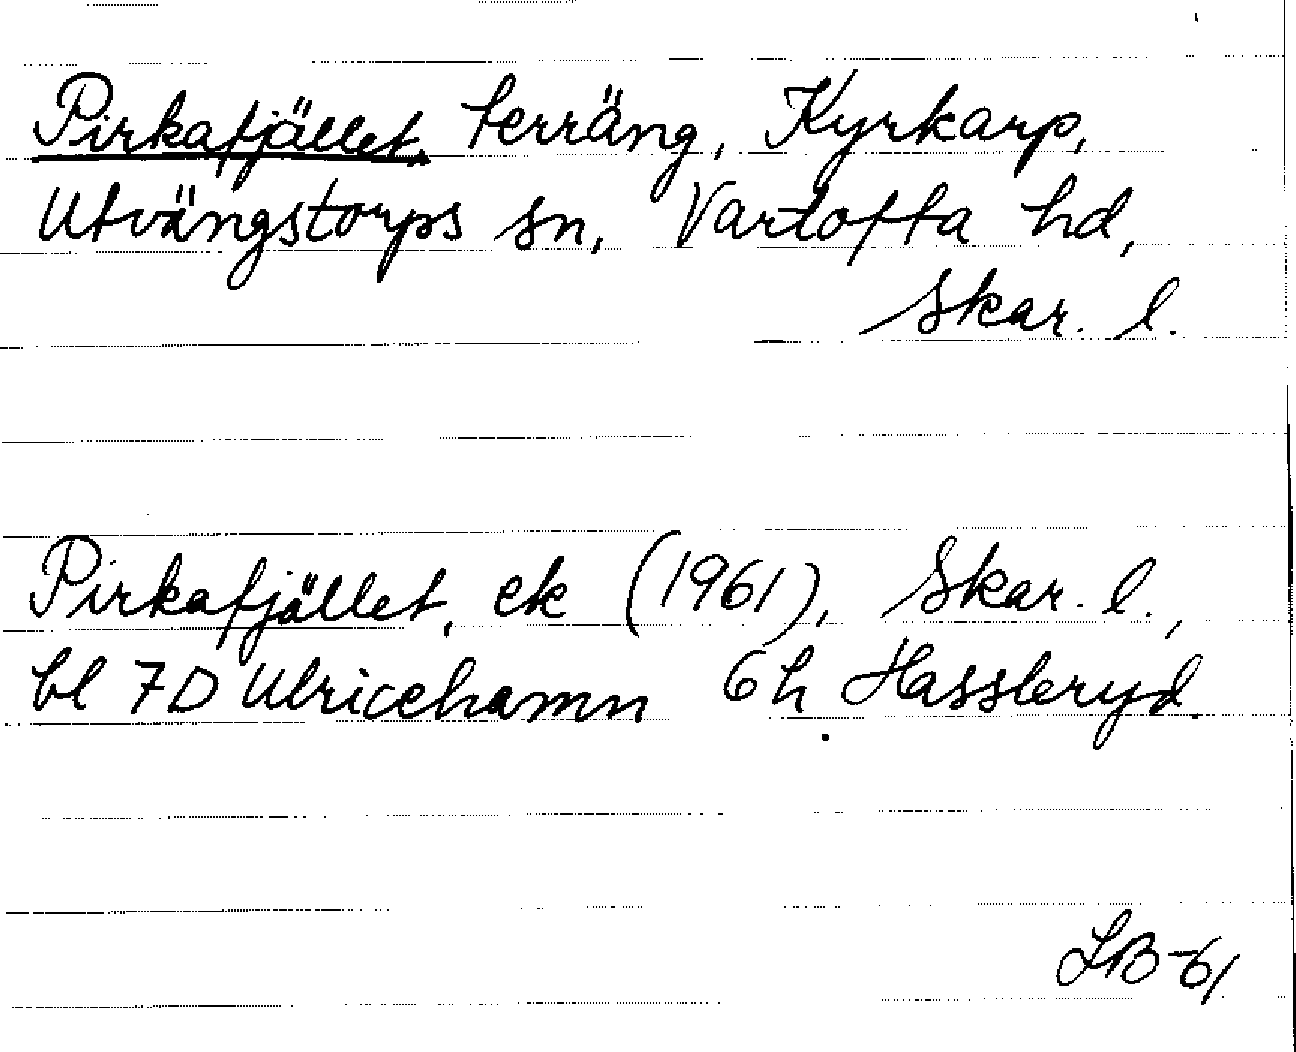 Pirkafjället, terräng, Kyrkarp,
Utvängstorps sn, Vartofta hd,
Skar. l.
Pirkafjället, ek (1961), Skar. l.,
bl 7D Ulricehamn 6h Hassleryd.
LB-61